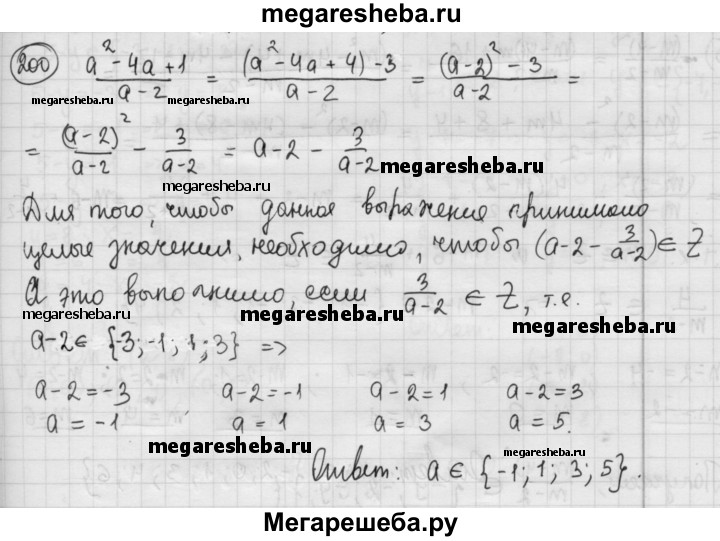 megaresheba.ru
200 (a² - 4a + 1)/(a - 2) = ((a² - 4a + 4) - 3)/(a - 2) = ((a - 2)² - 3)/(a - 2) =
megaresheba.ru megaresheba.ru megaresheba.ru
= (a - 2)²/(a - 2) - 3/(a - 2) = a - 2 - 3/(a - 2)
megaresheba.ru
megaresheba.ru
Для того, чтобы данное выражение принимало
целые значения, необходимо, чтобы (a - 2 - 3/(a - 2)) ∈ Z
А это выполнимо, если 3/(a - 2) ∈ Z, т.е.
megaresheba.ru megaresheba.ru megaresheba.ru
a - 2 ∈ {-3; -1; 1; 3} =>
a - 2 = -3 a - 2 = -1 a - 2 = 1 a - 2 = 3
a = -1 a = 1 a = 3 a = 5.
megaresheba.ru megaresheba.ru
Ответ: a ∈ {-1; 1; 3; 5}.
megaresheba.ru
Мегарешеба.ру